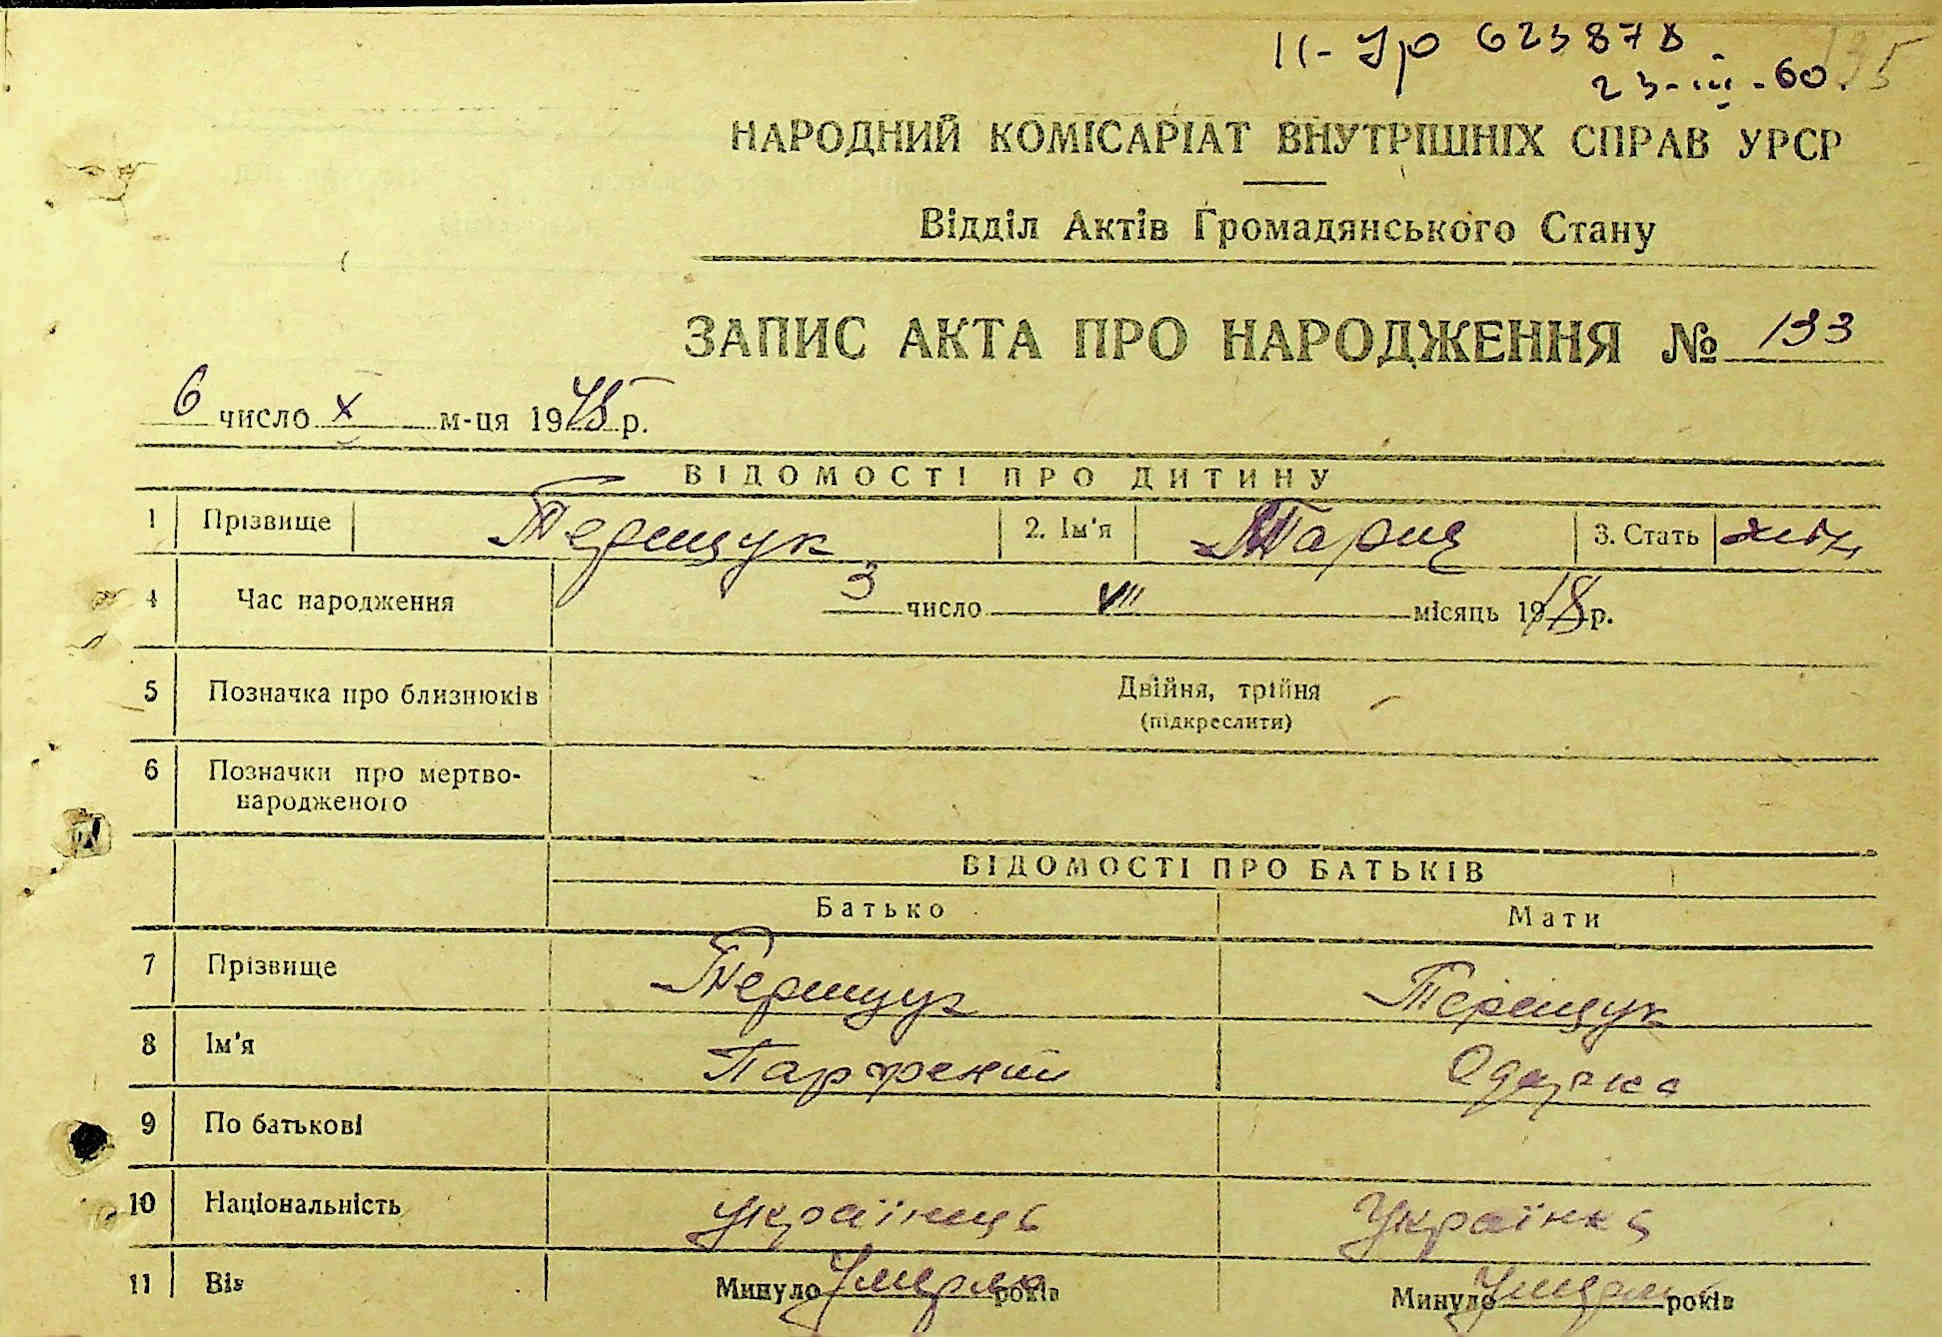 II-УР 623878
23-III-60.
НАРОДНИЙ КОМІСАРІАТ ВНУТРІШНІХ СПРАВ УРСР
Відділ Актів Громадянського Стану
ЗАПИС АКТА ПРО НАРОДЖЕННЯ № 133
6 число X м-ця 1945 р.
ВІДОМОСТІ ПРО ДИТИНУ
1 Прізвище Терещук 2. Ім'я 3. Стать жін
4 Час народження 3 число VII місяць 1918 р.
5 Позначка про близнюків Двійня, трійня
(підкреслити)
6 Позначки про мертво-
народженого
ВІДОМОСТІ ПРО БАТЬКІВ
Батько Мати
7 Прізвище Терещук Терещук
8 Ім'я Парфеній Одарка
9 По батькові
10 Національність Українець Українка
11 Вік Минуло Умерло років Минуло Умерла років